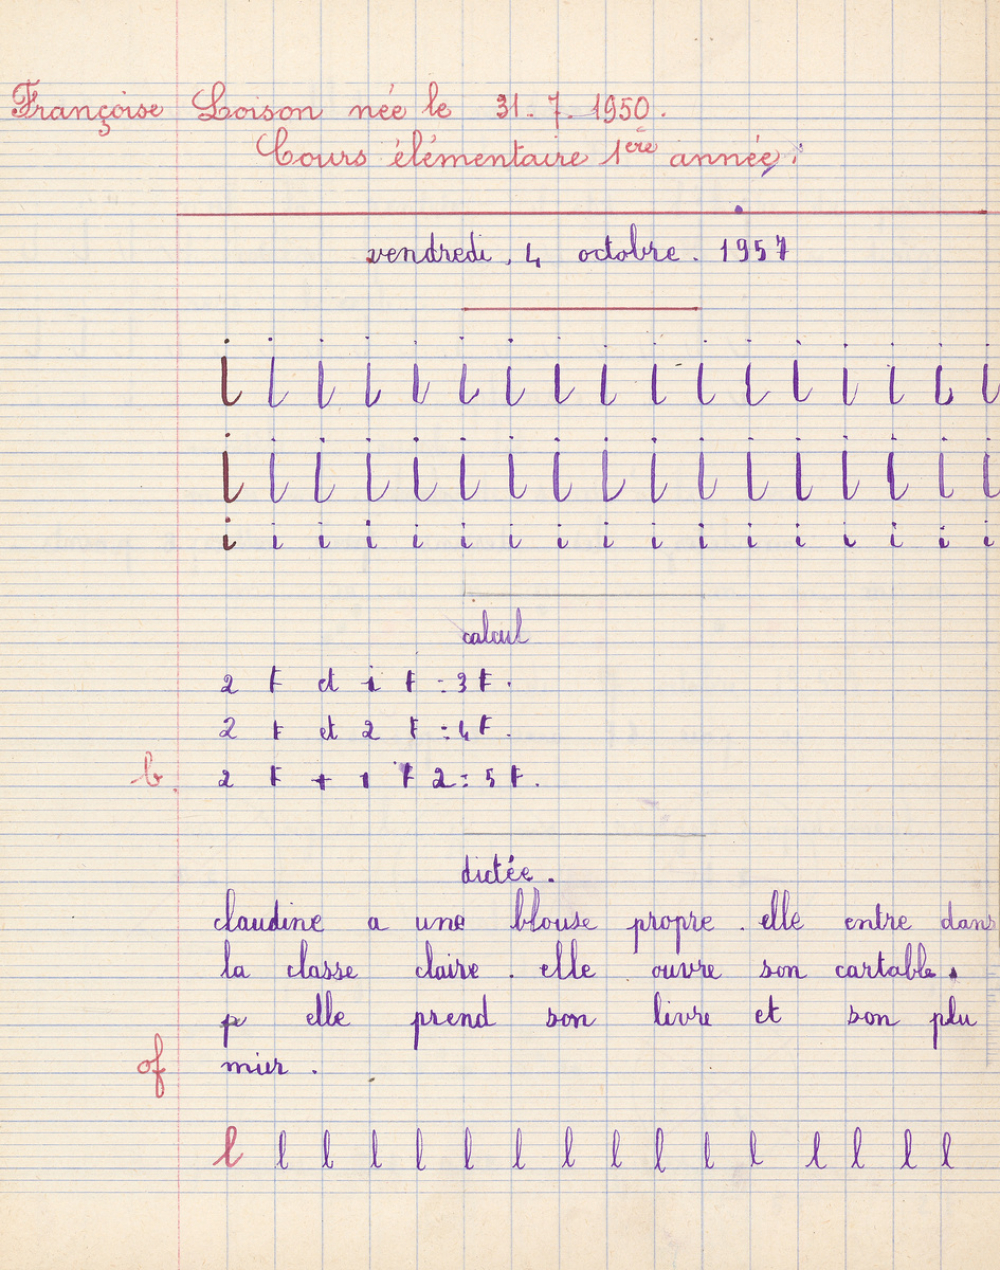 Françoise Loison née le 31.7.1950.
Cours élémentaire 1ère année.
vendredi, 4 octobre. 1957
i i i i i i i i i i i i i i i i i
i i i i i i i i i i i i i i i i i
i i i i i i i i i i i i i i i i i
calcul
2 F et 1 F = 3 F.
2 F et 2 F = 4 F.
b. 2 F + 1 F 2 = 5 F.
dictée.
claudine a une blouse propre. elle entre dans
la classe claire. elle ouvre son cartable.
p elle prend son livre et son plu
of mier.
l l l l l l l l l l l l l l l l